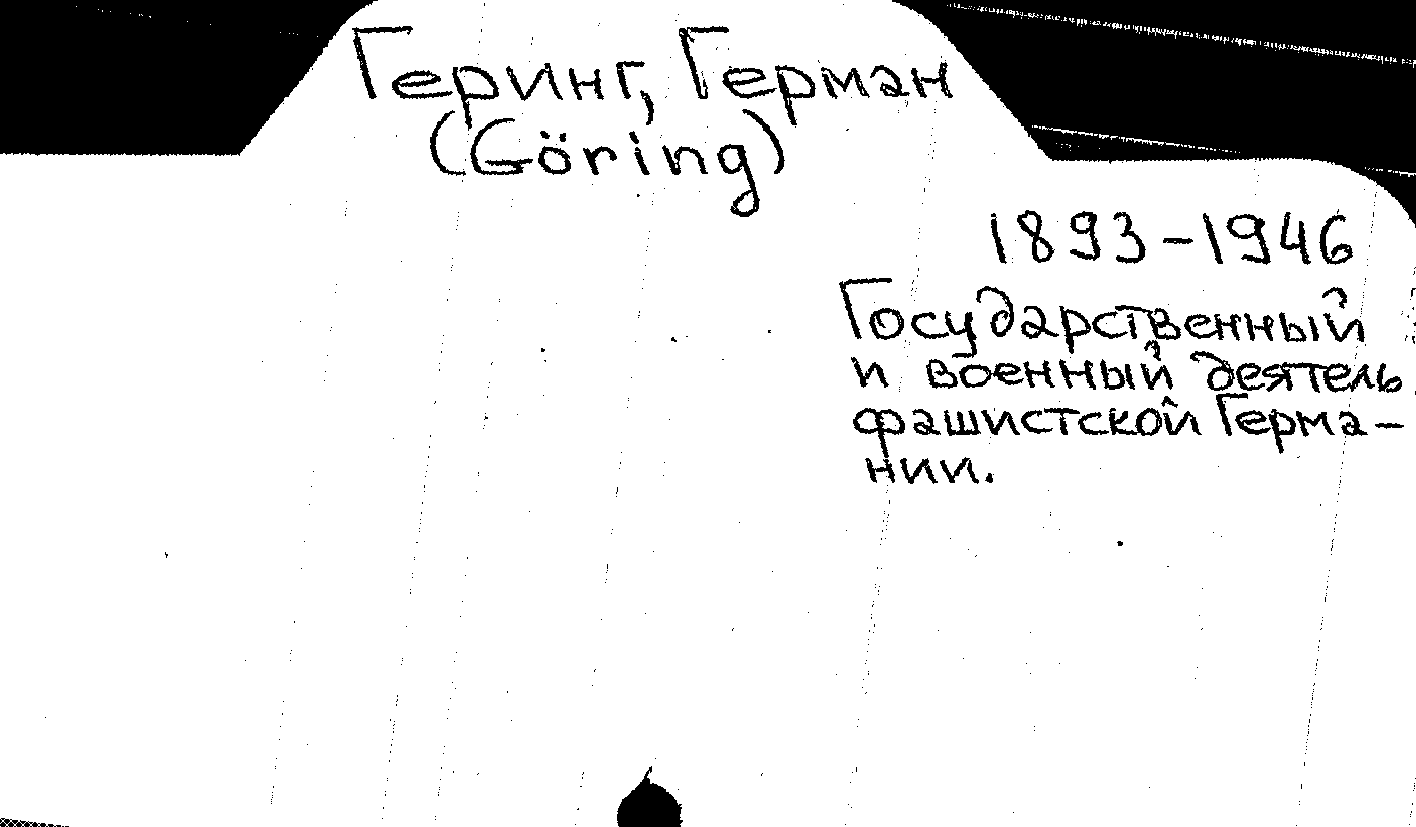 Геринг, Герман
(Göring)
1893-1946
Государственный
и военный деятель
фашистской Герма-
нии.